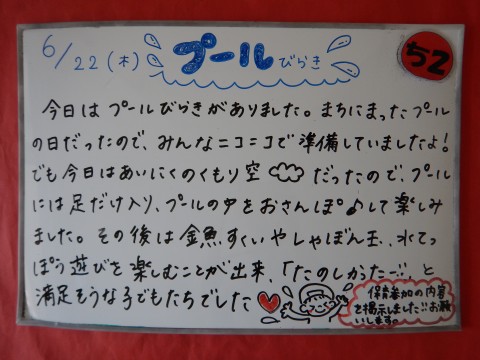 6/22(木) プールびらき ち2
今日は プールびらきがありました。まちにまったプール
の日だったので、みんなニコニコで準備していましたよ!
でも今日はあいにくのくもり空だったので、プール
には足だけ入り、プールの中をおさんぽ♪して楽しみ
ました。その後は金魚すくいやしゃぼん玉、水てっ
ぽう遊びを楽しむことが出来、「たのしかったー」と
満足そうな子どもたちでした
保育参加の内容
を掲示しました。お願
いします。